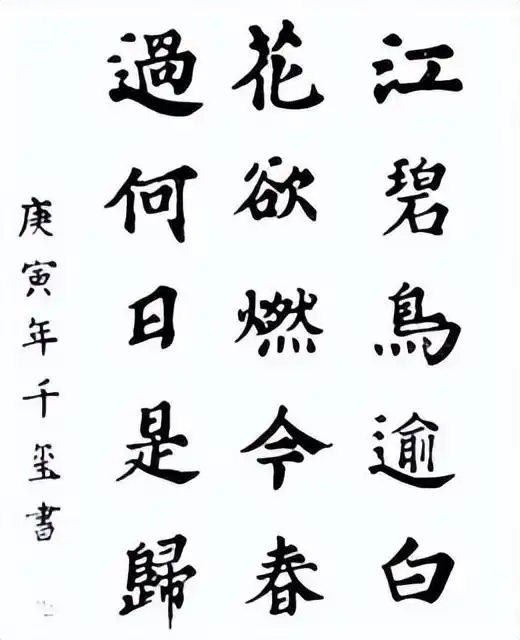 江碧鳥逾白
花欲燃今春
過何日是歸
庚寅年千玺書